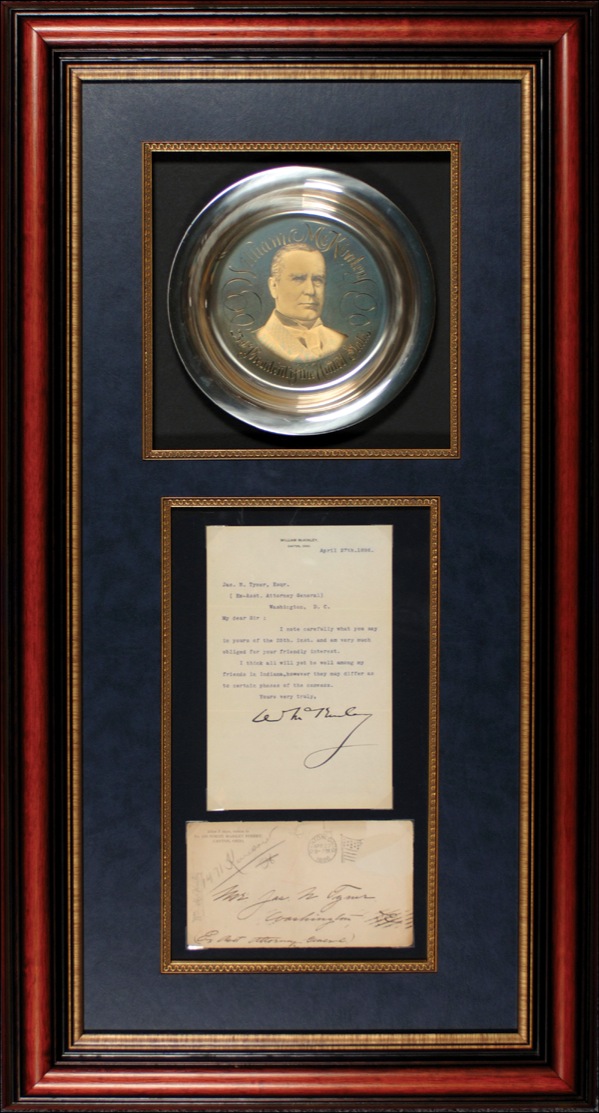 William McKinley
25th President of the United States
WILLIAM McKINLEY,
CANTON, OHIO.
April 27th.1896.
Jas. N. Tyner, Esqr.
( Ex-Asst. Attorney General)
Washington, D. C.
My dear Sir :
I note carefully what you say
in yours of the 25th. inst. and am very much
obliged for your friendly interest.
I think all will yet be well among my
friends in Indiana,however they may differ as
to certain phases of the canvass.
Yours very truly,
W McKinley
CANTON, OHIO
Mr. Jas. N. Tyner
Washington
Ex Asst Attorney General